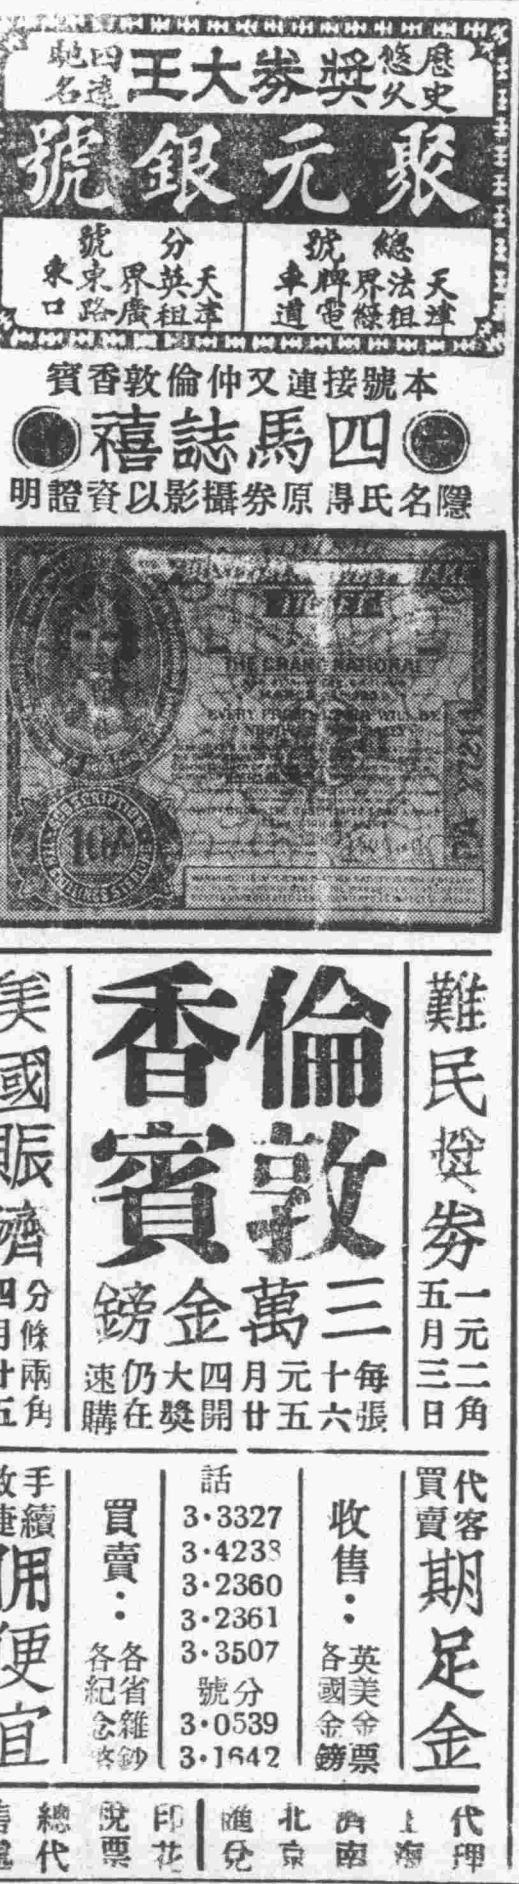 歷史
悠久
獎劵大王
四遠
馳名
聚元銀號
總號
天津
法租
界綠
牌電
車道
分號
天津
英租
界廣
東路
東口
本號接連又仲倫敦香賓
四馬誌禧
隱名氏得原券攝影以資證明
THE GRAND NATIONAL
難民獎劵
一元二角
五月三日
倫敦
香賓
三萬金鎊
每張
十六
元五
月廿
四開
大獎
仍在
速購
美國賑濟
分條兩角
四月廿五
代客
買賣
期足金
收售：
英美金票
各國金鎊
話
3·3327
3·4233
3·2360
3·2361
3·3507
分號
3·0539
3·1642
買賣：
各省雜鈔
各紀念幣
手續
敏捷
佣便宜
代理
上海
濟南
北京
匯兌
印花
稅票
總代